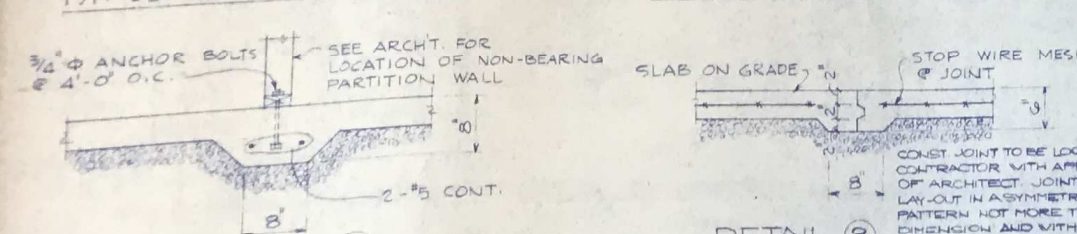 3/4" Φ ANCHOR BOLTS
@ 4'-0" O.C.
SEE ARCH'T. FOR
LOCATION OF NON-BEARING
PARTITION WALL
8"
2-#5 CONT.
8"
SLAB ON GRADE
STOP WIRE MES
@ JOINT
2"
2"
2"
6"
8"
CONST. JOINT TO BE LOC
CONTRACTOR WITH APP
OF ARCHITECT. JOINT
LAY-OUT IN A SYMMETR
PATTERN NOT MORE T
DIMENSION AND WITH
DETAIL